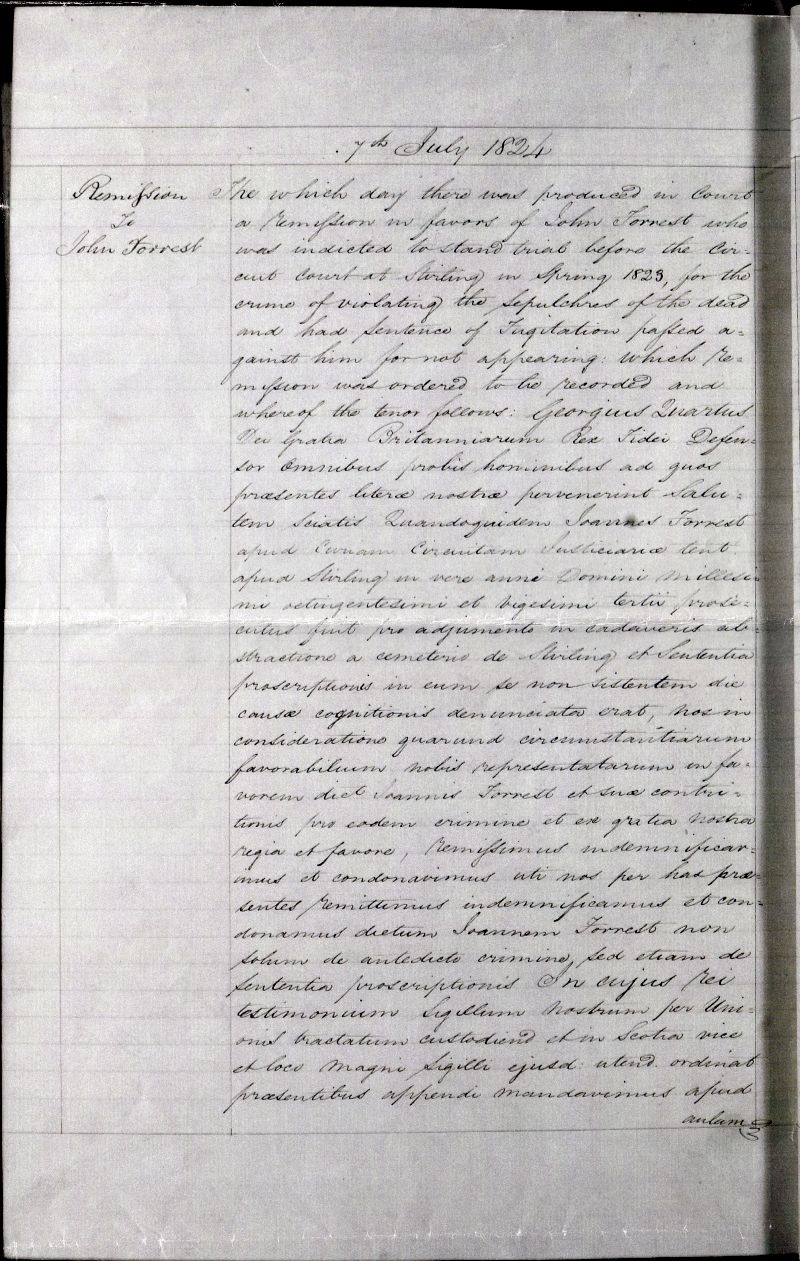 7th July 1824
Remission
To
John Forrest
The which day there was produced in Court
a Remission in favors of John Forrest who
was indicted to stand trial before the Cir-
cuit Court at Stirling in Spring 1823, for the
crime of violating the Sepulchres of the dead
and had sentence of Fugitation passed a-
gainst him for not appearing: which Re-
mission was ordered to be recorded and
whereof the tenor follows: Georgius Quartus
Dei Gratia Britanniarum Rex Fidei Defen-
sor Omnibus probis hominibus ad quos
præsentes literæ nostræ pervenerint Salu-
tem Sciatis Quandoquidem Joannes Forrest
apud Curiam Circuitam Justiciariæ tent.
apud Stirling in vere anni Domini Millesi-
mi octingentesimi et Vigesimi tertii prose-
cutus fuit pro adjumento in cadaveris ab-
stractione a cemeterio de Stirling et Sententia
proscriptionis in eum se non sistentem die
causæ cognitionis denunciata erat, nos in
consideratione quarund circumstantiarum
favorabilium nobis representatarum in fa-
vorem dict Joannis Forrest et suæ contri-
tionis pro eodem crimine et ex gratia nostra
regia et favore, Remissimus indemnificav-
imus et condonavimus uti nos per has præ-
sentes remittimus indemnificamus et con-
donamus dictum Joannem Forrest non
solum de antedicto crimine, sed etiam de
sententia proscriptionis In cujus Rei
testimonium Sigillum nostrum per Uni-
onis tractatum custodiend et in Scotia vice
et loco Magni Sigilli ejusd: utend. ordinat
præsentibus appendi mandavimus apud
aulam